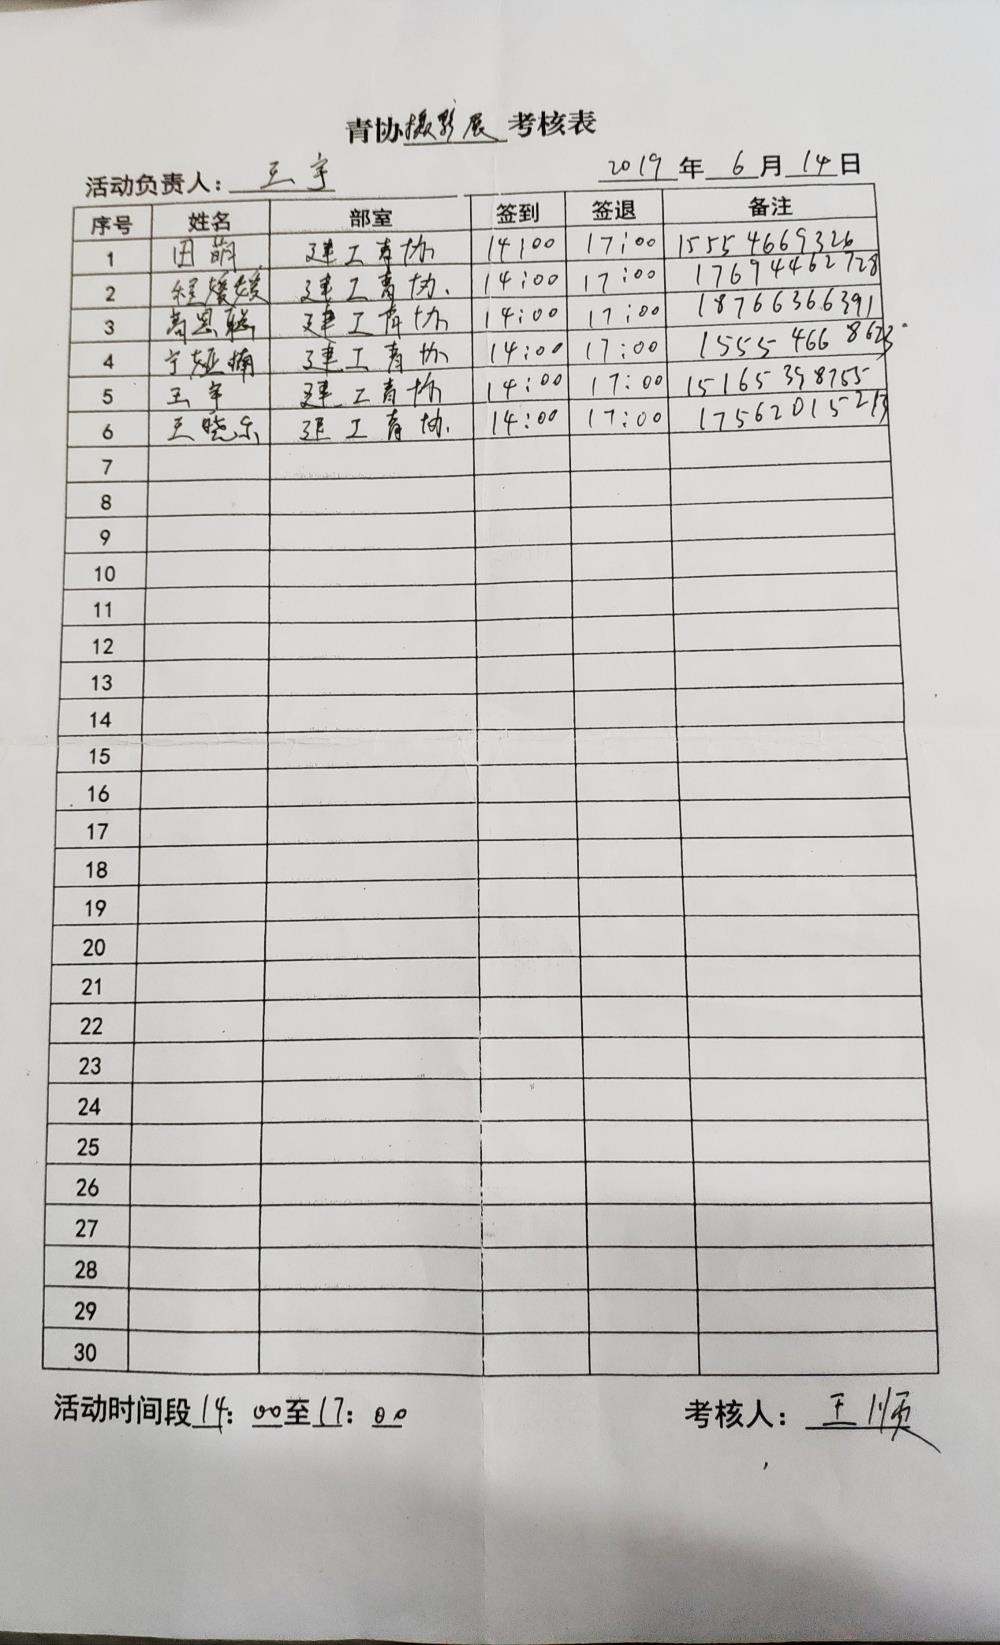 青协摄影展考核表
活动负责人：王宇 2019年6月14日
序号 姓名 部室 签到 签退 备注
1 田萌 建工青协 14:00 17:00 15554669326
2 程媛媛 建工青协. 14:00 17:00 17694462728
3 高思聪 建工青协 14:00 17:00 18766366391
4 宁娅楠 建工青协 14:00 17:00 1555 466 8623
5 王宇 建工青协 14:00 17:00 15165398755
6 王晓乐 建工青协. 14:00 17:00 17562015213
7
8
9
10
11
12
13
14
15
16
17
18
19
20
21
22
23
24
25
26
27
28
29
30
活动时间段14：00至17：00 考核人：王顺